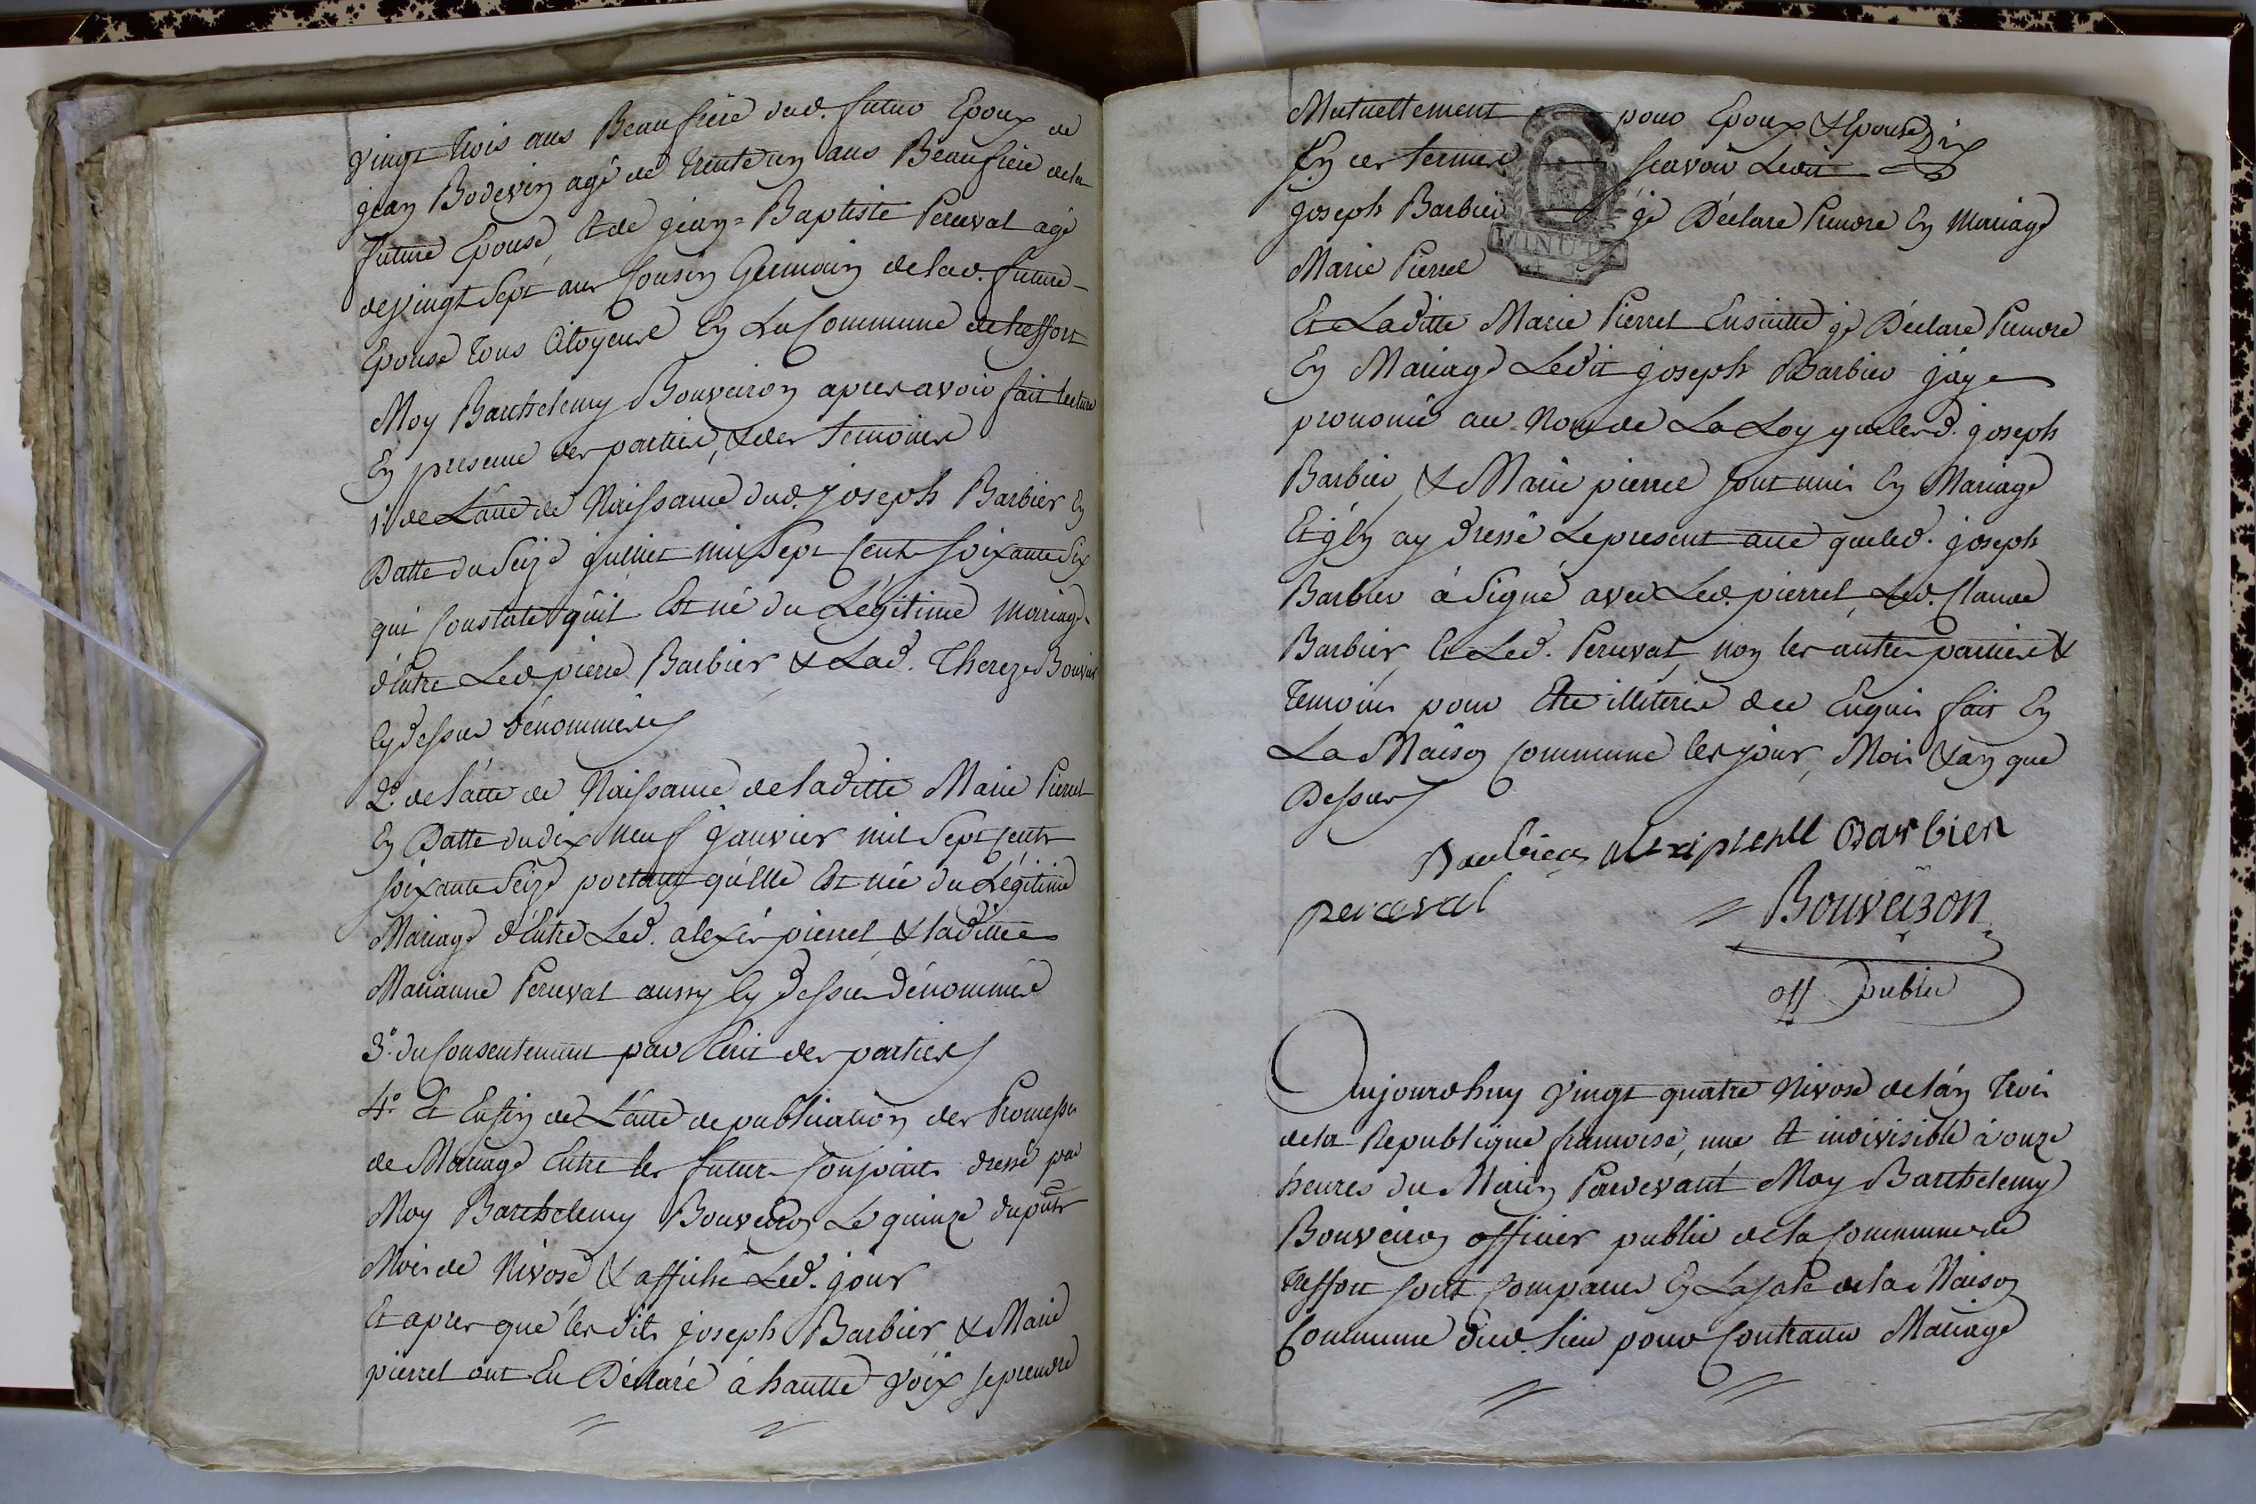 vingt trois ans Beaufrere dud. futur Epoux de
jean Bodevin agé de trente un ans Beaufrere de la
future Epouse, et de jean=Baptiste Perceval agé
de vingt Sept ans Cousin Germain de lad. future
Epouse tous Citoyens En La Commune de treffort
Moy Barthelemy Bouveiron apres avoir fait lecture
En presence des parties, & des temoins
1º de L'acte de Naissance dud. joseph Barbier En
Datte du Seize juillet mil Sept Cent Soixante Six
qui Constate qu'il Est né du Légitime Mariage
d'Entre Led. pierre Barbier & Lad. Thereze Bouvier
Cy Dessus dénommés
2º. de l'acte de Naissance de laditte Marie Pierrel
En Datte du dix Neuf janvier mil Sept Cents
soixante Seize portant qu'elle Est née du Légitime
Mariage d'Entre Led. alexis pierrel & laditte
Marianne Perceval aussy Cy Dessus dénommés
3º. du Consentement par Ecrit des parties
4º. Et Enfin de L'acte de publication des Promesses
de Mariage Entre les futurs Conjoints dressé par
Moy Barthelemy Bouveiron Le quinze du pnt
Mois de Nivose & affiché Led. jour
Et apres que lesdits joseph Barbier & Marie
pierrel ont Eu Déclaré à hautte voix se prendre
Mutuellement pour Epoux & Epouse
En ces termes scavoir Ledit
joseph Barbier je Déclare Prendre En Mariage
Marie Pierrel
MINUTE
Et Laditte Marie Pierrel Ensuitte je Déclare Prendre
En Mariage Ledit joseph Barbier j'ay
prononcé au Nom de La Loy que lesd. joseph
Barbier & Marie pierrel sont unis En Mariage
Et j'En ay dressé Le present acte que led. joseph
Barbier à Signé avec Led. pierrel, Led. Claude
Barbier Et Led. Perceval, non les autres parties &
temoins pour Etre illiterés de ce Enquis fait En
La Maison Commune les jour, Mois & an que
Dessus
Barbier alexi pierell Barbier
perceval Bouveiron
off public
Aujourdhuy vingt quatre Nivose de l'an trois
de la Republique francoise, une Et indivisible à onze
heures du Matin Pardevant Moy Barthelemy
Bouveiron officier public de la Commune de
treffort sont Comparus En La sale de la Maison
Commune dud. lieu pour Contracter Mariage